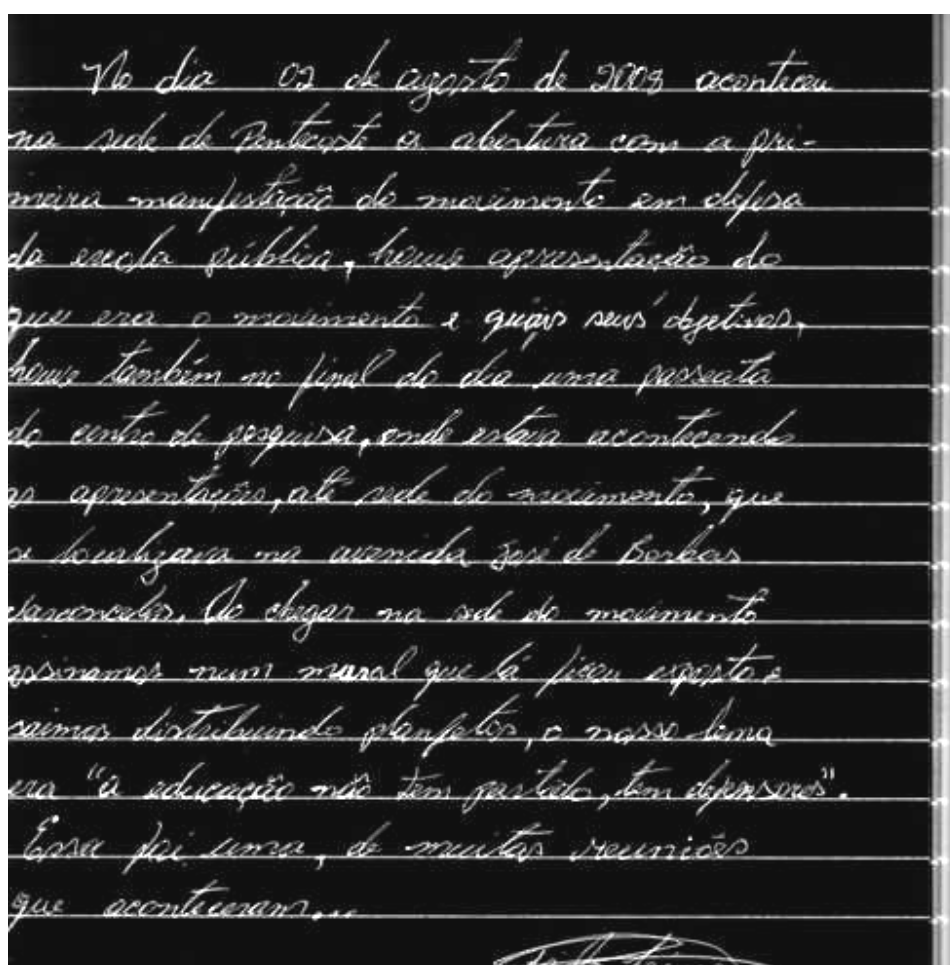 No dia 02 de agosto de 2008 aconteceu
na sede de Pentecoste a abertura com a pri-
meira manifestação do movimento em defesa
da escola pública, houve apresentação do
que era o movimento e quais seus objetivos,
houve também no final do dia uma passeata
do centro de pesquisa, onde estava acontecendo
as apresentações, até sede do movimento, que
se localizava na avenida José de Borbas
Vasconcelos. Ao chegar na sede do movimento
assinamos num mural que lá ficou exposto e
saimos distribuindo planfetos, o nosso lema
era "a educação não tem partido, tem defensores".
Essa foi uma, de muitas reuniões
que aconteceram...